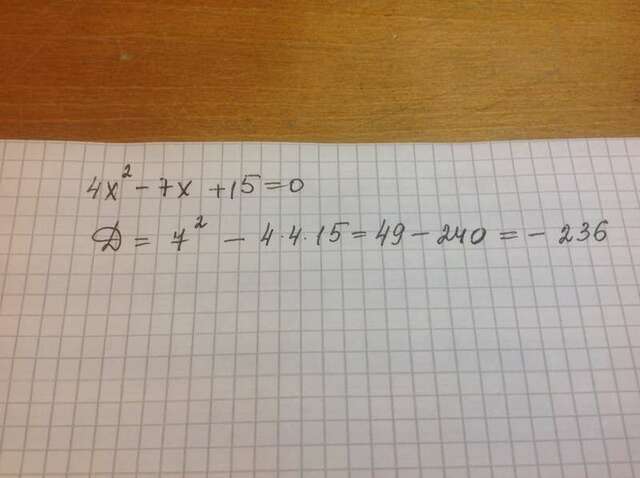 4x² - 7x + 15 = 0
Д = 7² - 4·4·15 = 49 - 240 = - 236